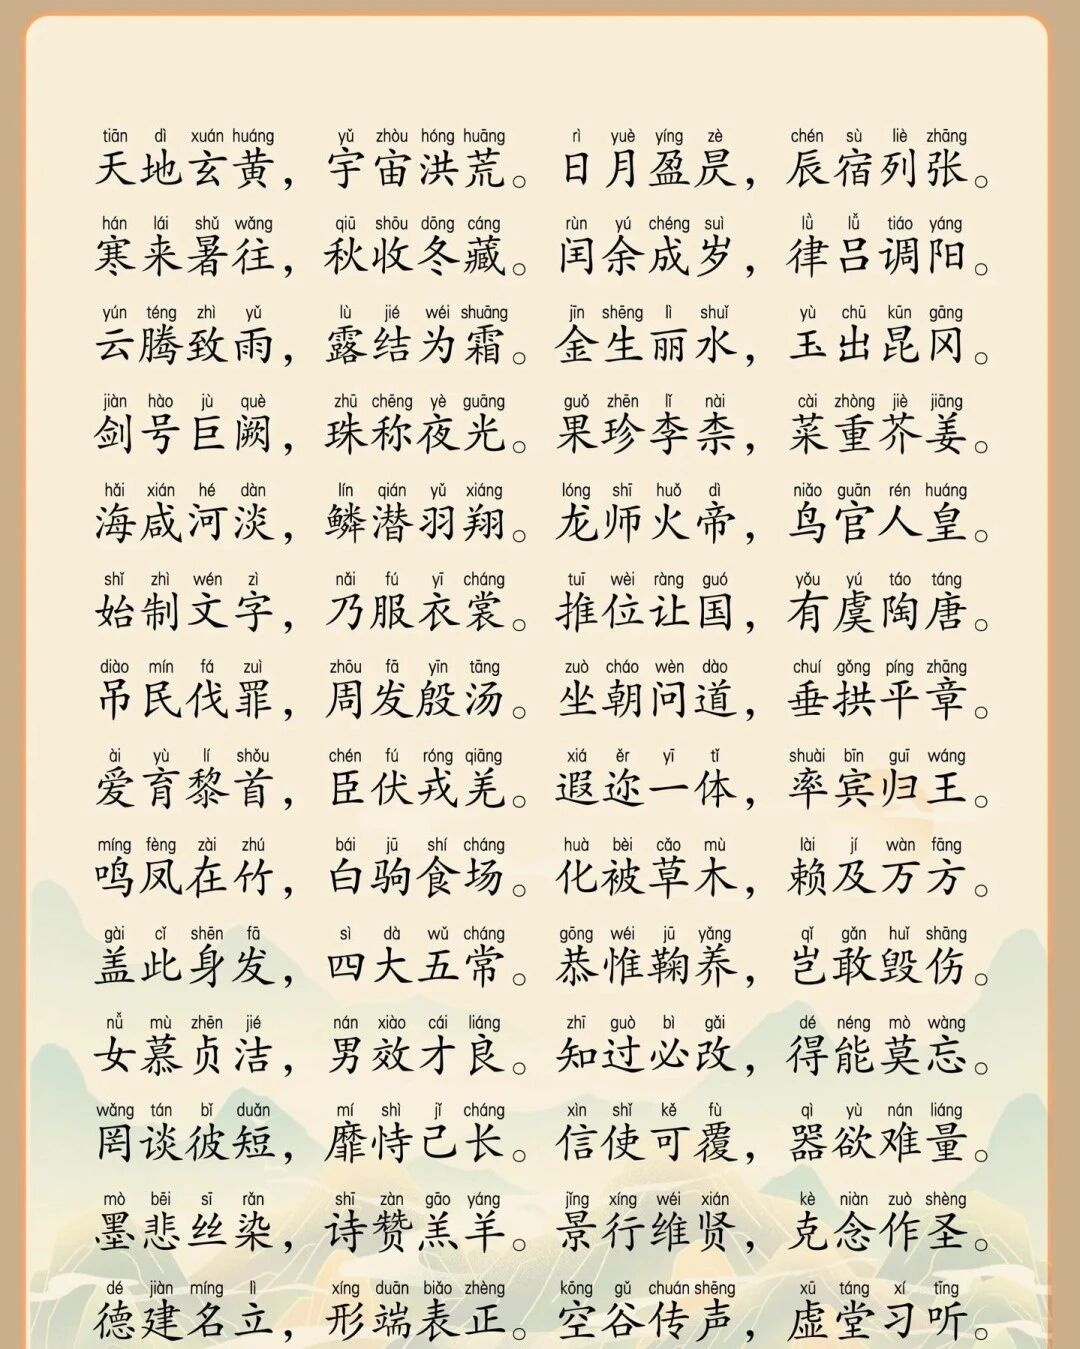 tiān dì xuán huáng yǔ zhòu hóng huāng rì yuè yíng zè chén sù liè zhāng
天地玄黄，宇宙洪荒。日月盈昃，辰宿列张。
hán lái shǔ wǎng qiū shōu dōng cáng rùn yú chéng suì lǜ lǚ tiáo yáng
寒来暑往，秋收冬藏。闰余成岁，律吕调阳。
yún téng zhì yǔ lù jié wéi shuāng jīn shēng lì shuǐ yù chū kūn gāng
云腾致雨，露结为霜。金生丽水，玉出昆冈。
jiàn hào jù què zhū chēng yè guāng guǒ zhēn lǐ nài cài zhòng jiè jiāng
剑号巨阙，珠称夜光。果珍李柰，菜重芥姜。
hǎi xián hé dàn lín qián yǔ xiáng lóng shī huǒ dì niǎo guān rén huáng
海咸河淡，鳞潜羽翔。龙师火帝，鸟官人皇。
shǐ zhì wén zì nǎi fú yī cháng tuī wèi ràng guó yǒu yú táo táng
始制文字，乃服衣裳。推位让国，有虞陶唐。
diào mín fá zuì zhōu fā yīn tāng zuò cháo wèn dào chuí gǒng píng zhāng
吊民伐罪，周发殷汤。坐朝问道，垂拱平章。
ài yù lí shǒu chén fú róng qiāng xiá ěr yī tǐ shuài bīn guī wáng
爱育黎首，臣伏戎羌。遐迩一体，率宾归王。
míng fèng zài zhú bái jū shí cháng huà bèi cǎo mù lài jí wàn fāng
鸣凤在竹，白驹食场。化被草木，赖及万方。
gài cǐ shēn fà sì dà wǔ cháng gōng wéi jū yǎng qǐ gǎn huǐ shāng
盖此身发，四大五常。恭惟鞠养，岂敢毁伤。
nǚ mù zhēn jié nán xiào cái liáng zhī guò bì gǎi dé néng mò wàng
女慕贞洁，男效才良。知过必改，得能莫忘。
wǎng tán bǐ duǎn mí shì jǐ cháng xìn shǐ kě fù qì yù nán liáng
罔谈彼短，靡恃己长。信使可覆，器欲难量。
mò bēi sī rǎn shī zàn gāo yáng jǐng xíng wéi xián kè niàn zuò shèng
墨悲丝染，诗赞羔羊。景行维贤，克念作圣。
dé jiàn míng lì xíng duān biǎo zhèng kōng gǔ chuán shēng xū táng xí tīng
德建名立，形端表正。空谷传声，虚堂习听。